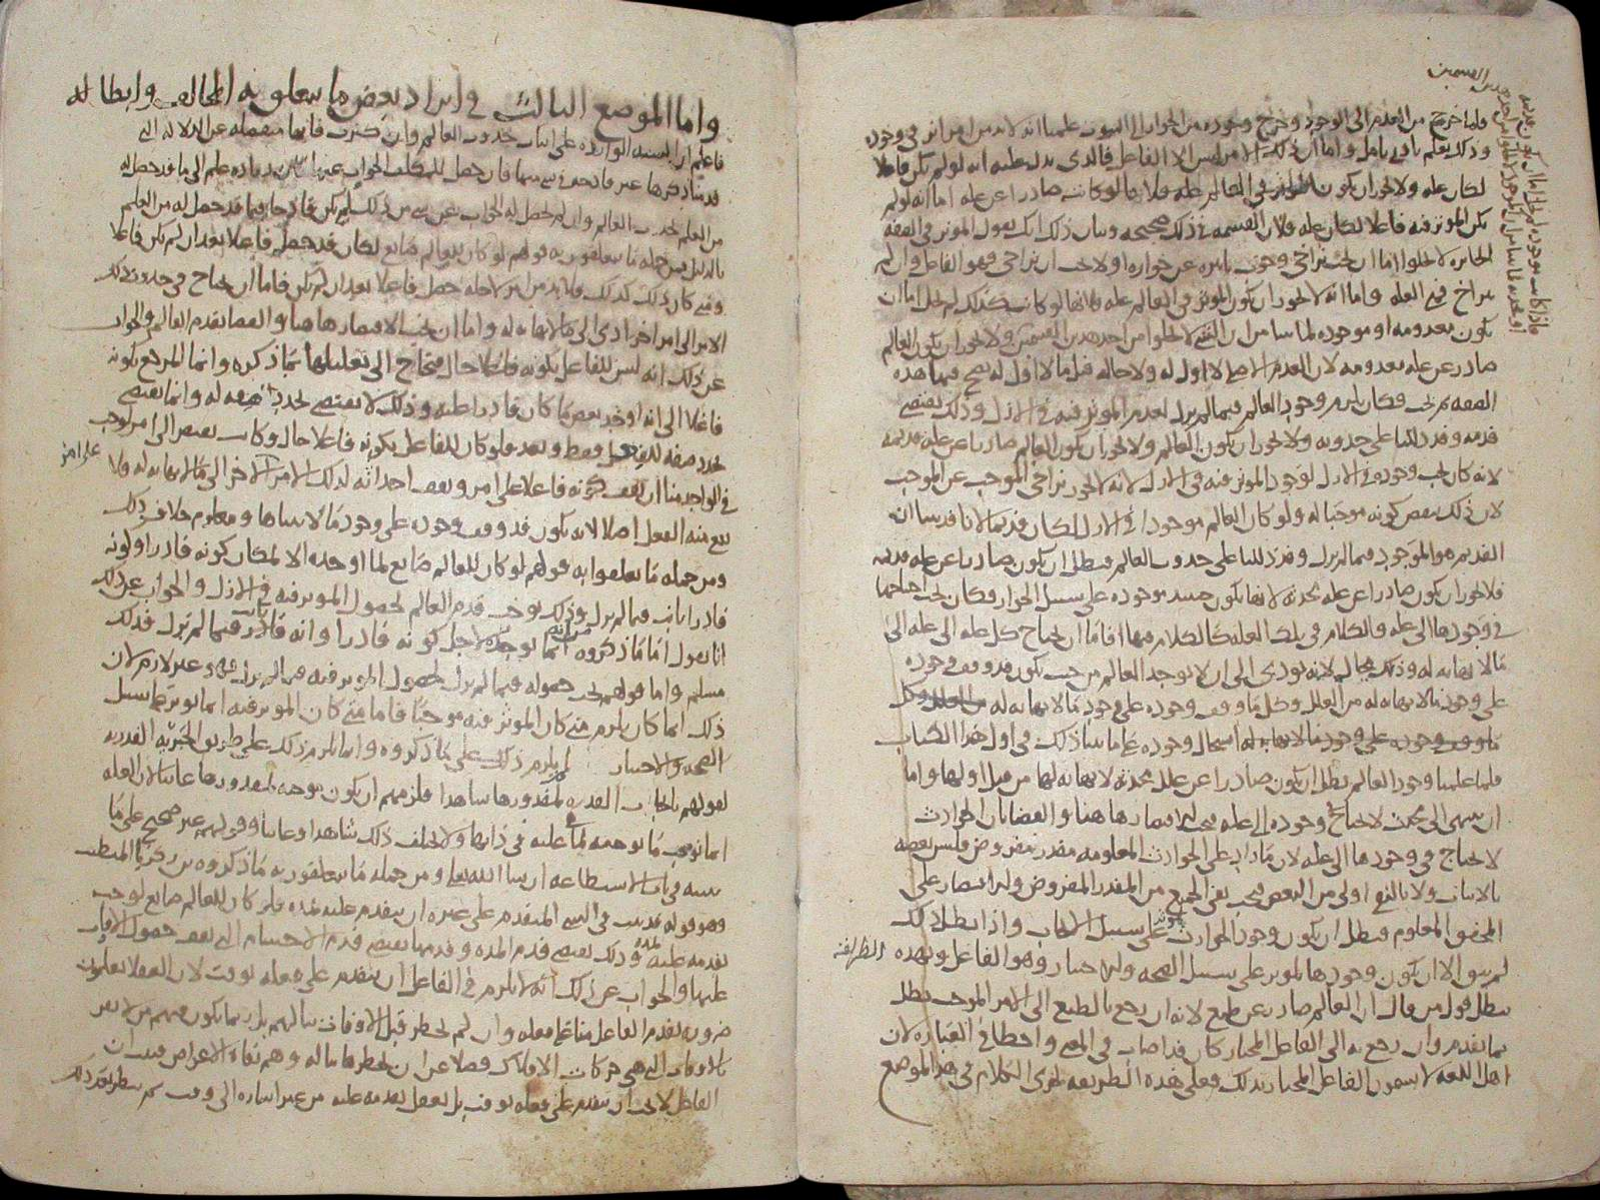 فلما خرج من العدم الى الوجود وخرج وجوده من الجواز الى الثبوت علمنا انه لا بد من امر اثر في وجوده
وذلك يعلم بادنى تامل واما ان ذلك الامر ليس الا الفاعل فالذي يدل عليه انه لو لم يكن فاعلا
لكان علة ولا يجوز ان يكون المؤثر في العالم علة فلانها لو كانت صادرا عن علة اما انه لو لم
يكن المؤثر فيه فاعلا لكان علة فلان القسمة في ذلك صحيحة وبيان ذلك انك تقول المؤثر في الصفة
الجايزة لا يخلوا اما ان يجب تراخي وجوب تاثيره عن جوازه او لا يجب ان تراخى فهو الفاعل وان لم
يتراخ فهو العلة واما انه لا يجوز ان يكون المؤثر في العالم علة فلانها لو كانت كذلك لم تخل اما ان
تكون معدومة او موجودة لما بينا من ان الشي لا يخلوا من احد هذين القسمين ولا يجوز ان يكون العالم
صادر عن علة معدومة لان العدم الاصلي لا اول له ولا حالة قبل ما لا اول له يصح فيها هذه
الصفة لم تجب فكان يلزم وجود العالم فيما لم يزل لعدم المؤثر فيه في الازل وذلك يقتضي
قدمه وقد دللنا على حدوثه ولا يجوز ان يكون العالم ولا يجوز ان يكون العالم صادرا عن علة قديمة
لانه كان يجب وجوده في الازل لوجود المؤثر فيه في الازل لانه لا يجوز تراخي الموجب عن الموجب
لان ذلك ينقض كونه موجبا له ولو كان العالم موجودا في الازل لكان قديما لانا قد بينا ان
القديم هو الموجود فيما لم يزل وقد دللنا على حدوث العالم فبطل ان يكون صادرا عن علة قديمة
فلا يجوز ان يكون صادرا عن علة محدثة لانها تكون حينئذ موجودة على سبيل الجواز فكان يجب احتياجها
في وجودها الى علة والكلام في تلك العلة كالكلام فيها فاما ان يحتاج كل علة الى علة الى
ما لا نهاية له وذلك محال لانه يودي الى ان لا يوجد العالم من حيث يكون قد وقف وجوده
على وجود ما لا نهاية له من العلل وكل ما وقف وجوده على وجود ما لا نهاية له
استحال وجوده على ما بينا ذلك في اول هذا الكتاب
فلما علمنا وجود العالم بطل ان يكون صادرا عن علل محدثة لا نهاية لها من قبل اولها واما
ان ينتهي الى محدث لا يحتاج في وجوده الى علة فيجب الاقتصار هاهنا والقضا بان الحوادث
لا تحتاج في وجودها الى علة لان ما زاد على الحوادث المعلومة مقدر مفروض فليس بعضه
بالاثبات ولا بالنفي اولى من البعض فيجب نفي الجميع من المقدر المفروض والاقتصار على
المحقق المعلوم فبطل ان يكون وجود الحوادث على سبيل الايجاب واذا بطل ذلك
لم يبق الا ان يكون وجودها لمؤثر على سبيل الصحة والاختيار وهو الفاعل وبهذه الطريقة
يبطل قول من قال ان العالم صادر عن طبع لانه ان رجع بالطبع الى الامر الموجب بطل
بما تقدم وان رجع به الى الفاعل المختار كان قد اصاب في المعنى واخطا في العبارة لان
اهل اللغة لا يسمون الفاعل المختار بذلك فعلى هذه الطريقة يجري الكلام في هذا الموضع
واما الموضع الثالث في ايراد بعض ما يتعلق به المخالف وابطاله
فاعلم ان الشبه الواردة على اثبات حدوث العالم وان كثرت فانها منفصلة عن الدلالة التي
قدمنا ذكرها غير قادحة في شي منها فان حصل للمكلف الجواب عنها زياده علم الى ما قد حصل له
من العلم بحدوث العالم وان لم يحصل له الجواب عن شي من ذلك لم يكن قادحا فيما قد حصل له من العلم
بالدليل فمن جملة ما يتعلقون به قولهم لو كان للعالم صانع لكان قد حصل فاعلا بعد ان لم يكن فاعلا
ومتى كان ذلك كذلك فلا بد من امر لاجله حصل فاعلا بعد ان لم يكن فاما ان يحتاج في حدوث ذلك
الامر الى امر اخر ادى الى ما لا نهاية له واما ان يجب الاقتصار هاهنا والقضا بقدم العالم والجواب
عن ذلك انه ليس للفاعل بكونه فاعلا حال فيحتاج الى تعليلها بما ذكره وانما المرجع بكونه
فاعلا الى انه اوجد بعض ما كان قادرا عليه وذلك لا يقتضي تجدد صفة له وانما يقتضي
تجدد صفة للفعل فقط وبعد فلو كان للفاعل بكونه فاعلا حال وكانت تفتقر الى امر لوجب
في الواحد منا ان يقف كونه فاعلا على امر ويقف احداثه لذلك الامر على امر اخر الى ما لا نهاية له ولا
يقع منه الفعل اصلا لانه يكون قد وقف وجوده على وجود ما لا يتناها ومعلوم خلاف ذلك
ومن جملة ما تعلقوا به قولهم لو كان للعالم صانع لما اوجده الا لمكان كونه قادرا وكونه
قادرا ثابت فيما لم يزل وذلك يوجب قدم العالم لحصول المؤثر فيه في الازل والجواب عن ذلك
انا نقول اما ما ذكروه من انه انما يوجده لاجل كونه قادرا وانه قادر فيما لم يزل فذلك
مسلم واما قولهم يجب حصوله فيما لم يزل لحصول المؤثر فيه فيما لم يزل فهو غير لازم لان
ذلك انما كان يلزم متى كان المؤثر فيه موجبا فاما متى كان المؤثر فيه انما يؤثر على سبيل
الصحة والاختيار لم يلزم ذلك على ما ذكروه وانما يلزم ذلك على طريق المجبرة القدرية
لقولهم بايجاب القدرة لمقدورها شاهدا فلزمهم ان يكون موجبة لمقدورها غايبا لان العلة
انما توجب ما توجبه لما هي عليه في ذاتها ولا يختلف ذلك شاهدا وغايبا وقولهم غير صحيح على ما
نبينه في باب الاستطاعة ان شا الله تعالى ومن جملة ما يتعلقون به ما ذكروه بن زكريا المتطبب
وهو قوله قد ثبت في الشي المتقدم على غيره ان يتقدم عليه بمدة فلو كان للعالم صانع لوجب
تقدمه عليه بمدة وذلك يقتضي قدم المدة وقدمها يقتضي قدم الاجسام التي يقف حصول الاوقات
عليها والجواب عن ذلك انه لا يلزم في الفاعل ان يتقدم على فعله بوقت لان العقلا يعلمون
ضرورة تقدم الفاعل منا على فعله وان لم تخطر قبل الاوقات ببالهم بل ربما يكون فيهم من لا يقر
بالاوقات التي هي حركات الافلاك فضلا عن ان يخطرها بباله وهم نفاة الاعراض فبان ان
الفاعل لا يجب ان يتقدم على فعله بوقت بل يعقل تقدمه عليه من غير اشارة الى وقت ثم ينظر بعد ذلك